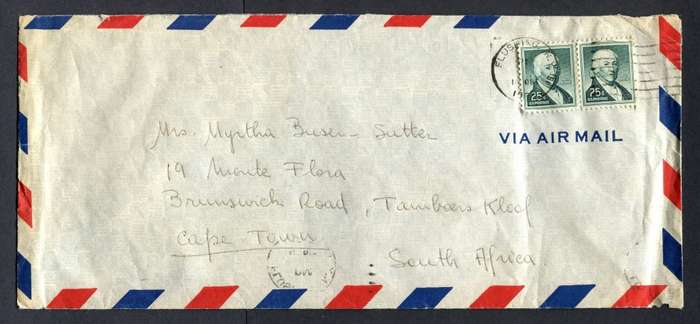 FLUSHING
25¢ 25¢
VIA AIR MAIL
Mrs. Myrtha Buser - Sutter
19 Monte Flora
Brunswick Road, Tamboers Kloof
Cape Town
South Africa